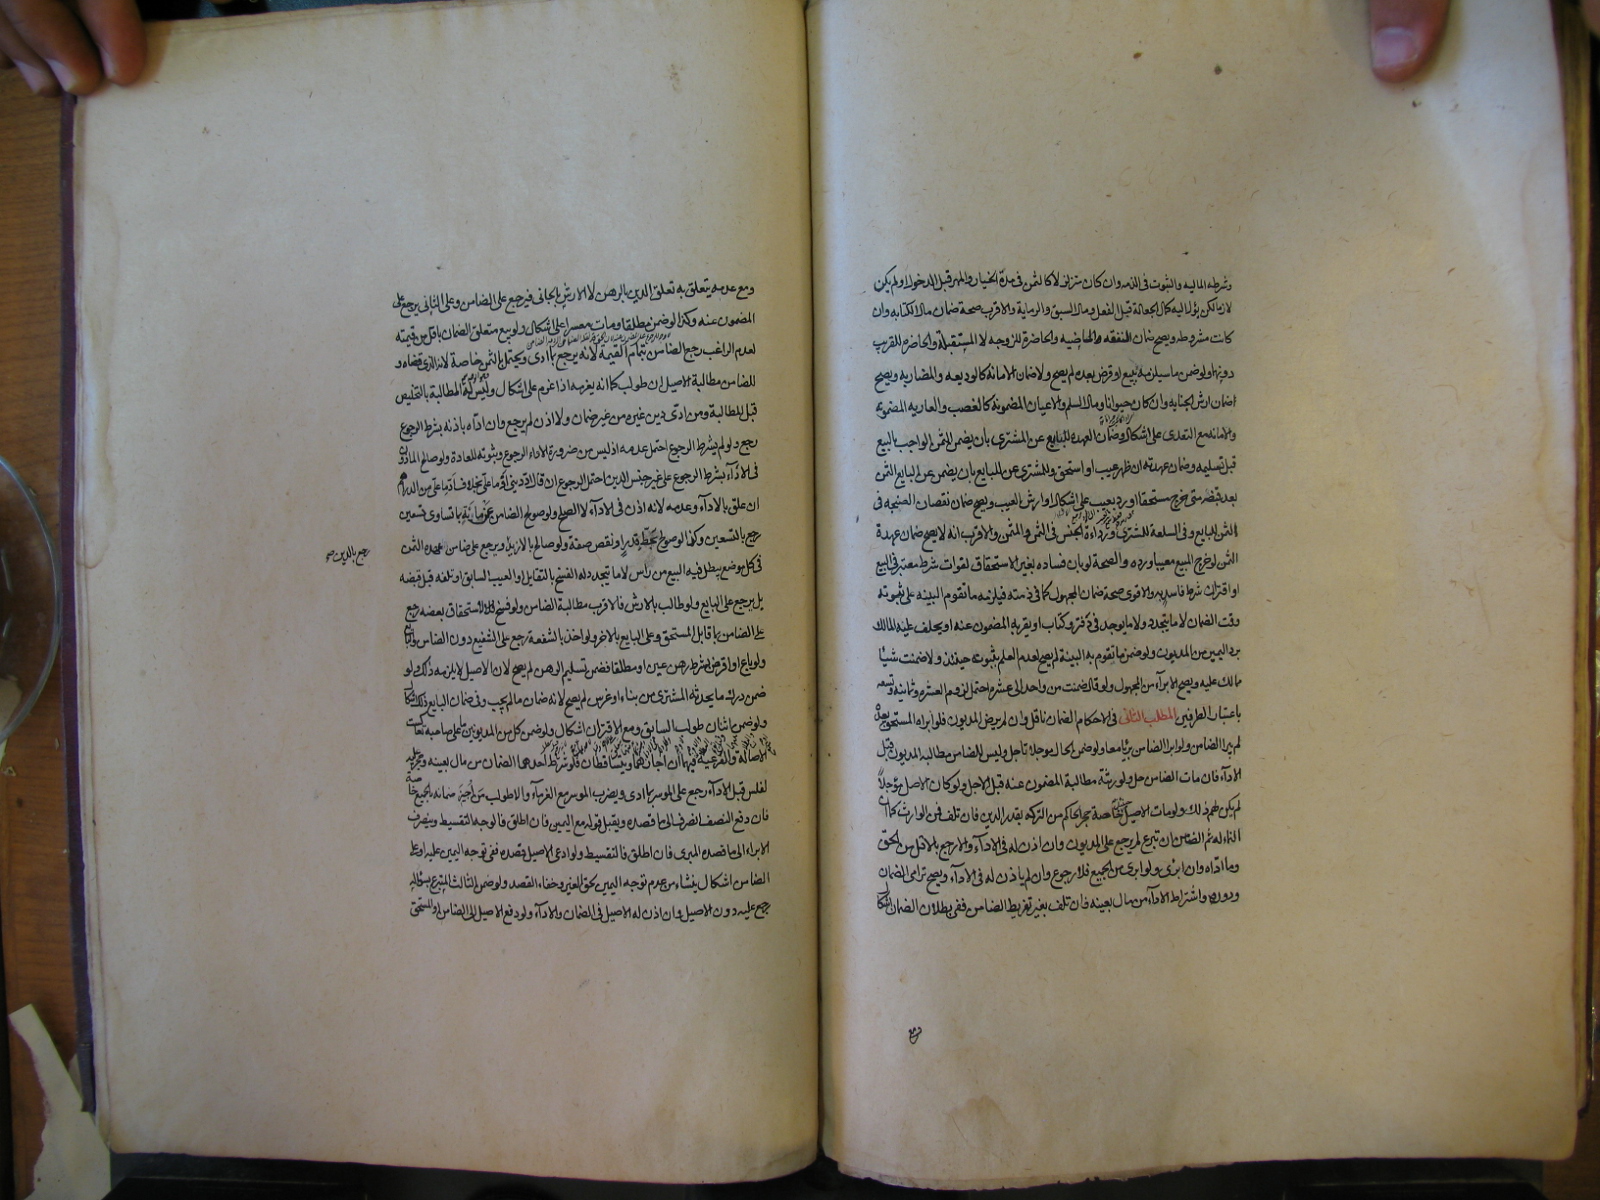 وشرطه المالية والثبوت في الذمه وان كان متزلزلا كالثمن في مدة الخيار والمهر قبل الدخول او لم يكن
لازما لكن يؤل اليه كمال الجعالة قبل الفعل ومال السبق والرماية والاقرب صحة ضمان مال الكتابه وان
كانت مشروطه ويصح ضمان النفقه الماضيه والحاضرة للزوجه لا المستقبلة والحاضره للقريب
دونها ولو ضمن ما سيلزمه ببيع او قرض بعده لم يصح ولا ضمان الامانه كالوديعه والمضاربه ويصح
ضمان ارش الجنايه وان كان حيوانا ومال السلم والاعيان المضمونه كالغصب والعاريه المضمونه
والامانه مع التعدى على اشكال وضمان العهده للبايع عن المشترى بان يضمن الثمن الواجب بالبيع
قبل تسليمه وضمان عهدته ان ظهر عيب او استحق وللمشترى عن البايع بان يضمن عن البايع الثمن
بعد قبضه متى خرج مستحقا او رد بعيب على اشكال او ارش العيب ويصح ضمان نقصان الصنجه في
الثمن للبايع وفي السلعة للمشترى ورداءة الجنس في الثمن والمثمن والاقرب انه لا يصح ضمان عهدة
الثمن لو خرج المبيع معيبا ورده والصحة لو بان فساده بغير الاستحقاق لفوات شرط معتبر في البيع
او اقتران شرط فاسد به والاقوى صحة ضمان المجهول كما في ذمته فيلزمه ما تقوم البينه على ثبوته
وقت الضمان لا ما يتجدد ولا ما يوجد في دفتر وكتاب او يقر به المضمون عنه او يحلف عليه المالك
برد اليمين من المديون ولو ضمن ما تقوم به البينة لم يصح لعدم العلم بثبوته حينئذ ولا ضمنت شيا
مما لك عليه ويصح الابرآء من المجهول ولو قال ضمنت من واحد الى عشره احتمل لزوم العشره وثمانيه وتسعه
باعتبار الطرفين المطلب الثاني في الاحكام الضمان ناقل وان لم يرض المديون فلو ابراه المستحق بعده
لم يبرا الضامن ولو ابرا الضامن برئا معا ولو ضمن الحال موجلا تاجل وليس للضامن مطالبه المديون قبل
الادآء فان مات الضامن حل ولورثته مطالبة المضمون عنه قبل الاجل ولو كان الاصل مؤجلا
لم يكن لهم ذلك ولو مات الاصيل خاصة حجر الحاكم من التركه بقدر الدين فان تلف فمن الوارث كما ان
النماء له ثم الضامن ان تبرع لم يرجع على المديون وان اذن له في الادآء والا رجع بالاقل من الحق
وما ادّاه وان ابرئ ولو ابرئ من الجميع فلا رجوع وان لم ياذن له في الادآء ويصح ترامى الضمان
ودوره واشتراط الادآء من مال بعينه فان تلف بغير تفريط الضامن ففي بطلان الضمان اشكال
ومع عدمه يتعلق به تعلق الدين بالرهن لا الارش بالجانى فيرجع على الضامن وعلى الثاني يرجع على
المضمون عنه وكذا لو ضمن مطلقا ومات معسرا على اشكال ولو بيع متعلق الضمان باقل من قيمته
لعدم الراغب رجع الضامن بتمام القيمة لانه يرجع بما ادى ويحتمل بالثمن خاصة لانه الذى قضاه و
للضامن مطالبة الاصيل ان طولب كما انه يغرمه اذا غرم على اشكال وليس له المطالبة بالتخليص
قبل المطالبة ومن ادى دين غيره من غير ضمان ولا اذن لم يرجع وان ادّاه باذنه بشرط الرجوع
رجع ولو لم يشرط الرجوع احتمل عدمه اذ ليس من ضرورة الاداء الرجوع وثبوته للعادة ولو صالح الماذون
في الادآء بشرط الرجوع على غير جنس الدين احتمل الرجوع ان قال اد ديني او ما على بخلاف اد ما على من الدراهم
ان علق بالادآء وعدمه لانه اذن في الادآء لا الصلح ولو صولح الضامن عن مائة بما تساوى تسعين
رجع بالتسعين وكذا لو صولح بحط قدر او نقص صفة ولو صالح بالازيد او يرجع على ضامن عهده الثمن
في كل موضع يبطل فيه البيع من راس لا ما تجدد له الفسخ بالتقايل او العيب السابق او تلفه قبل قبضه
بل يرجع على البايع ولو طالب بالارش فالاقرب مطالبة الضامن ولو فسخ لاستحقاق بعضه رجع
على الضامن بما قابل المستحق وعلى البايع بالاخر ولو اخذ بالشفعة رجع على الشفيع دون الضامن والبايع
ولو باع او اقرض بشرط رهن عين او مطلقا فضمن تسليم الرهن لم يصح لان الاصيل لا يلزمه ذلك ولو
ضمن درك ما يحدثه المشترى من بناء او غرس لم يصح لانه ضمان ما لم يجب وفي ضمان البايع ذلك اشكال
ولو ضمن اثنان طولب السابق ومع الاقتران اشكال ولو ضمن كل من المديونين ما على صاحبه تعاكست
الاصالة والفرعية فيهما ان اجاز هما ويتساقطان فلو شرط احدهما الضمان من مال بعينه وحجر عليه
لفلس قبل الادآء رجع على الموسر بما ادى ويضرب الموسر مع الغرمآء والا طولب من اجيز ضمانه بالجميع خاصة
فان دفع النصف انصرف الى ما قصده ويقبل قوله مع اليمين فان اطلق فالوجه التقسيط وينصرف
الابراء الى ما قصده المبرى فان اطلق فالتقسيط ولو ادعى الاصيل قصده ففي توجه اليمين عليه او على
الضامن اشكال ينشاء من عدم توجه اليمين لحق الغير وخفاء القصد ولو ضمن الثالث المتبرع بسؤاله
رجع عليه دون الاصيل وان اذن له الاصيل في الضمان والادآء ولو دفع الاصيل الى الضامن او المستحق
رجع بالدين صح
ومع